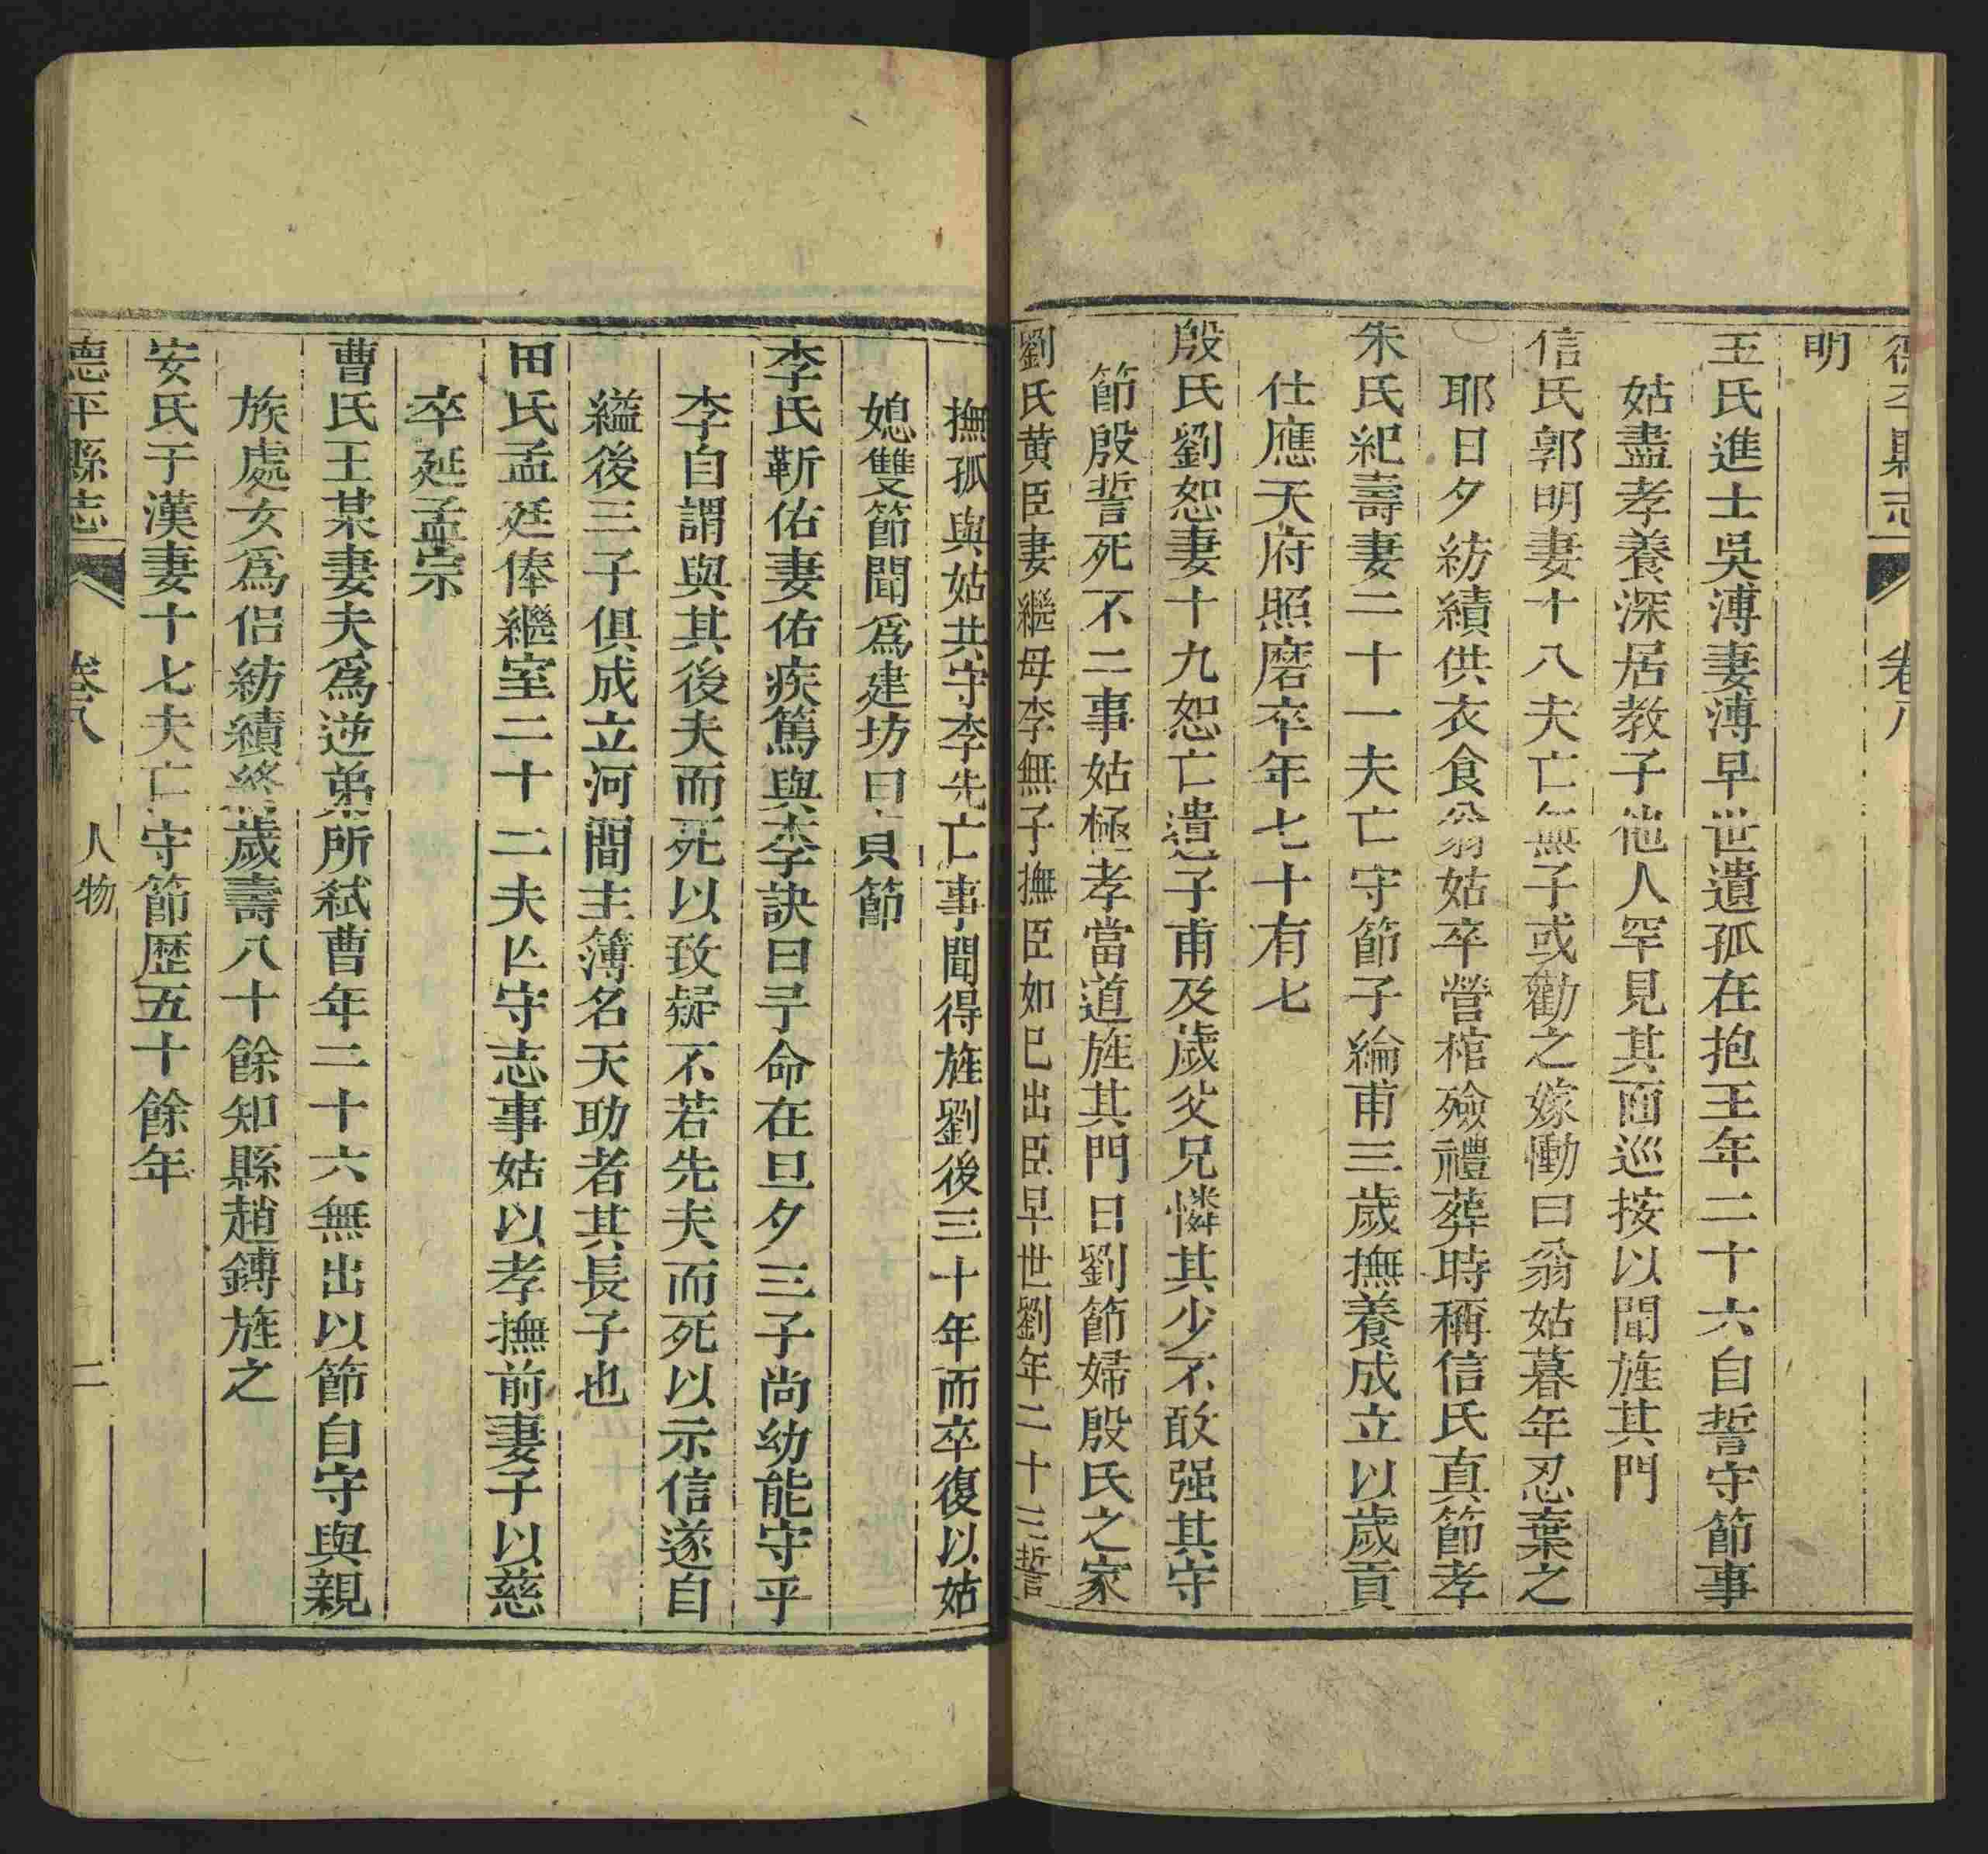 德平縣志 卷八
明
王氏進士吳溥妻溥早世遺孤在抱王年二十六自誓守節事
姑盡孝養深居教子他人罕見其面巡按以聞旌其門
信氏郭明妻十八夫亡無子或勸之嫁慟曰翁姑暮年忍棄之
耶日夕紡績供衣食翁姑卒營棺殮禮葬時稱信氏真節孝
朱氏紀壽妻二十一夫亡守節子綸甫三歲撫養成立以歲貢
仕應天府照磨卒年七十有七
殷氏劉恕妻十九恕亡遺子甫及歲父兄憐其少不敢强其守
節殷誓死不二事姑極孝當道旌其門曰劉節婦殷氏之家
劉氏黄臣妻繼母李無子撫臣如已出臣早世劉年二十三誓
撫孤與姑共守李先亡事聞得旌劉後三十年而卒復以姑
媳雙節聞爲建坊曰貞節
李氏靳佑妻佑疾篤與李訣曰予命在旦夕三子尚幼能守乎
李自謂與其後夫而死以致疑不若先夫而死以示信遂自
縊後三子俱成立河間主簿名天助者其長子也
田氏孟廷俸繼室二十二夫亾守志事姑以孝撫前妻子以慈
卒延孟宗
曹氏王某妻夫爲逆弟所弑曹年二十六無出以節自守與親
族處女爲侶紡績終歲壽八十餘知縣趙鏄旌之
安氏于漢妻十七夫亡守節歷五十餘年
德平縣志 卷八 人物 二